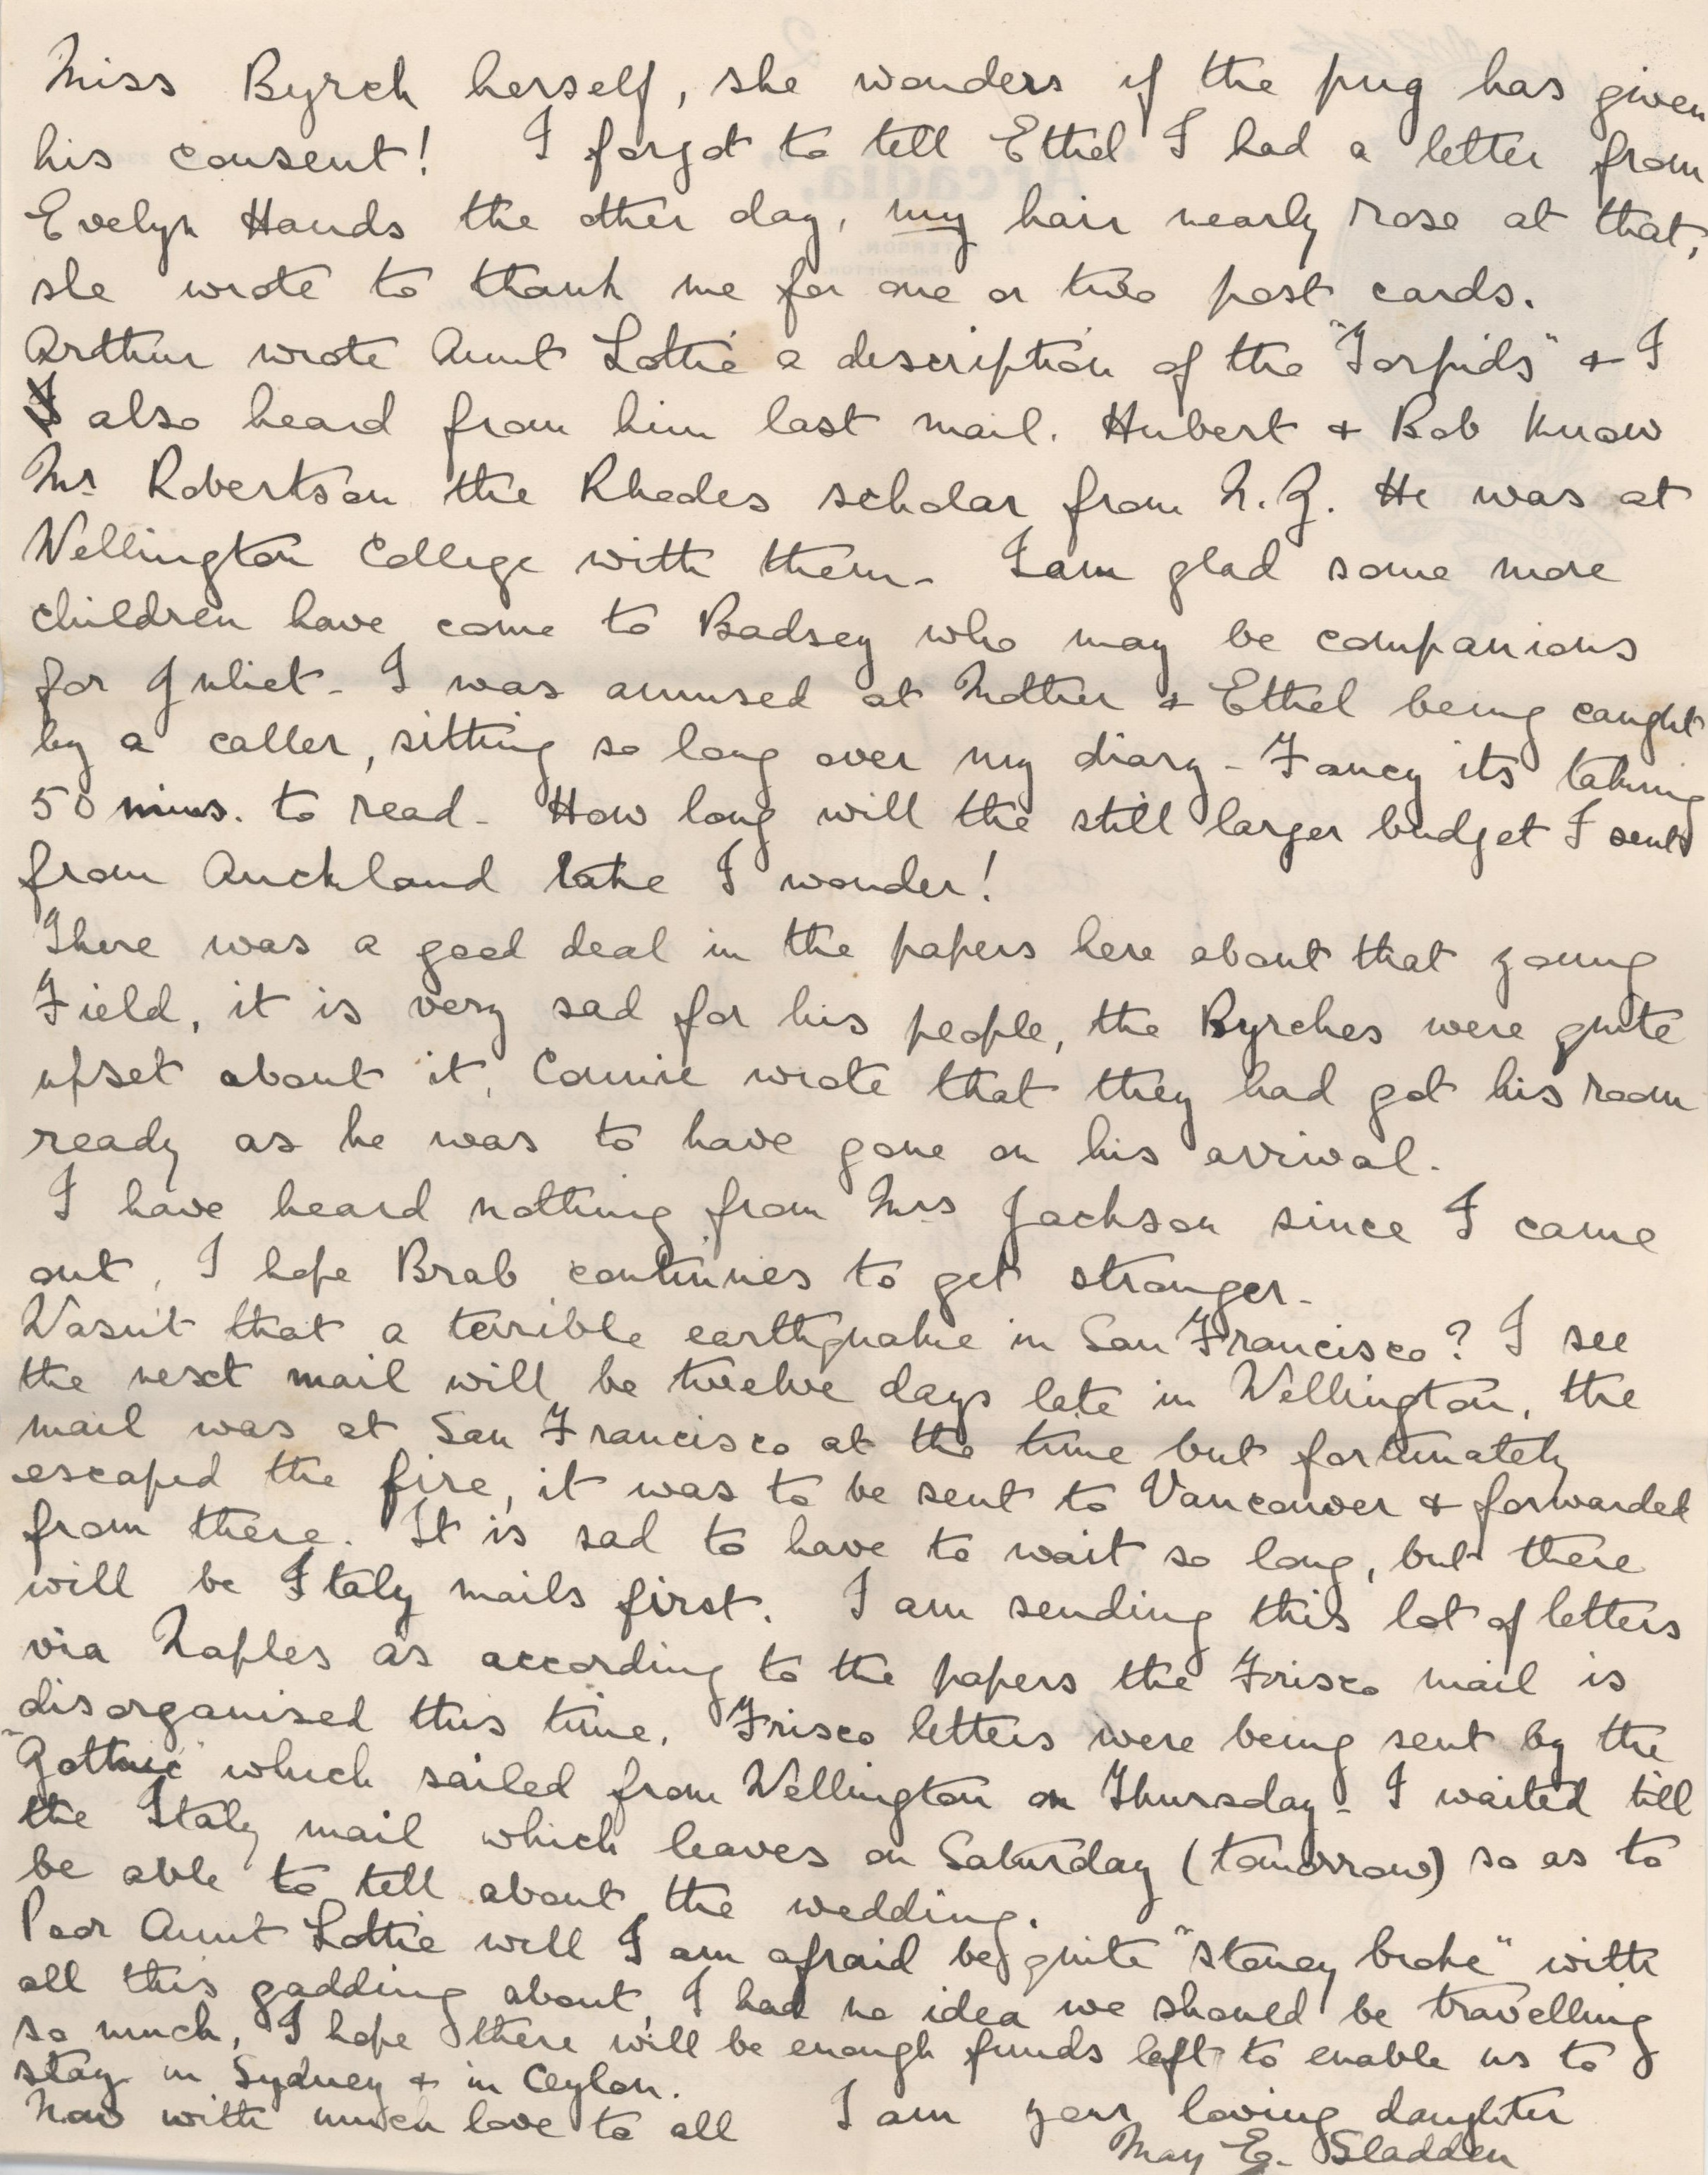 Miss Byrch herself, she wonders if the pug has given
his consent! I forgot to tell Ethel I had a letter from
Evelyn Hands the other day, my hair nearly rose at that,
she wrote to thank me for one or two post cards.
Arthur wrote Aunt Lottie a description of the "Torpids" & I
I also heard from him last mail. Hubert & Bob know
Mr Robertson the Rhodes scholar from N.Z. He was at
Wellington College with them - I am glad some more
children have come to Badsey who may be companions
for Juliet - I was amused at Mother & Ethel being caught
by a caller, sitting so long over my diary - Fancy its taking
50 mins. to read - How long will the still larger budget I sent
from Auckland take I wonder!
There was a good deal in the papers here about that young
Field, it is very sad for his people, the Byrches were quite
upset about it, Connie wrote that they had got his room
ready as he was to have gone on his arrival.
I have heard nothing from Mrs Jackson since I came
out, I hope Brab continues to get stronger -
Wasn't that a terrible earthquake in San Francisco? I see
the next mail will be twelve days late in Wellington, the
mail was at San Francisco at the time but fortunately
escaped the fire, it was to be sent to Vancouver & forwarded
from there. It is sad to have to wait so long, but there
will be Italy mails first. I am sending this lot of letters
via Naples as according to the papers the Frisco mail is
disorganised this time. Frisco letters were being sent by the
"Gothic" which sailed from Wellington on Thursday - I waited till
the Italy mail which leaves on Saturday (tomorrow) so as to
be able to tell about the wedding.
Poor Aunt Lottie will I am afraid be quite "stoney broke" with
all this gadding about, I had no idea we should be travelling
so much, I hope there will be enough funds left to enable us to
stay in Sydney & in Ceylon.
Now with much love to all I am your loving daughter
May E. Sladden
Arcadia.